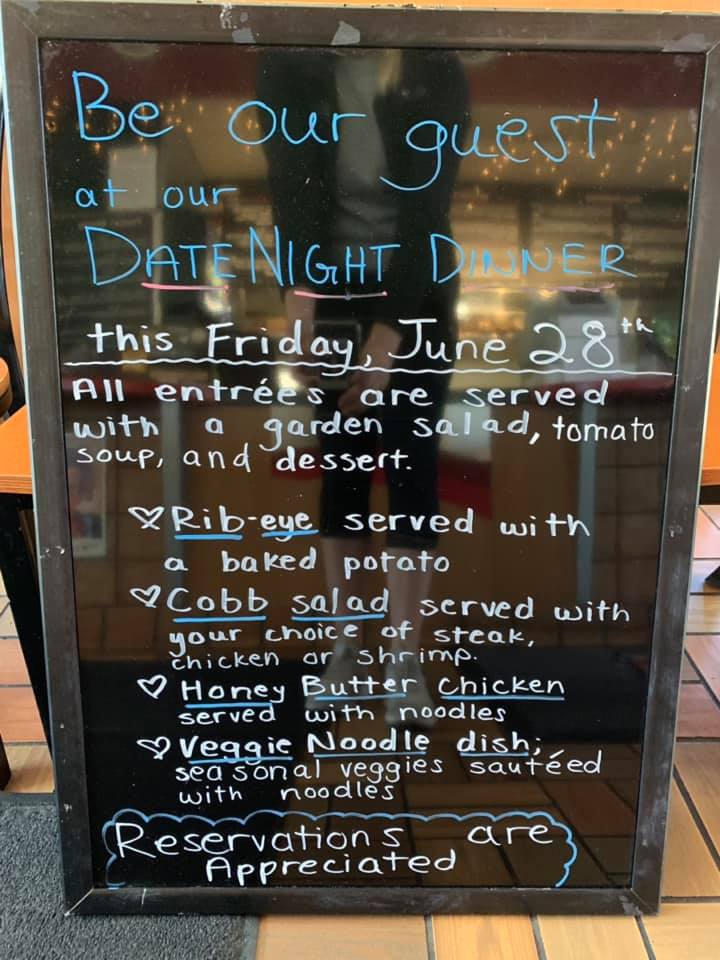 Be our guest
at our
DATE NIGHT DINNER
this Friday, June 28th
All entrées are served
with a garden salad, tomato
soup, and dessert.
♡ Rib-eye served with
a baked potato
♡ Cobb salad served with
your choice of steak,
chicken or shrimp.
♡ Honey Butter Chicken
served with noodles
♡ Veggie Noodle dish;
seasonal veggies sautéed
with noodles
Reservations are
Appreciated